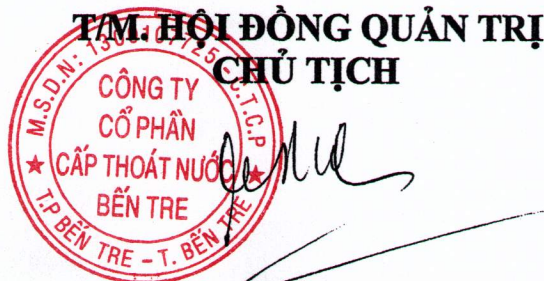 T/M. HỘI ĐỒNG QUẢN TRỊ
CHỦ TỊCH
M.S.D.N: C.T.C.P
CÔNG TY
CỔ PHẦN
CẤP THOÁT NƯỚC
BẾN TRE
T.P BẾN TRE - T. BẾN TRE